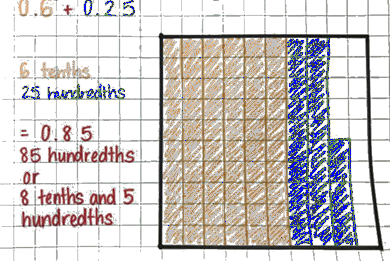 0.6 + 0.25
6 tenths
25 hundredths
= 0.85
85 hundredths
or
8 tenths and 5
hundredths